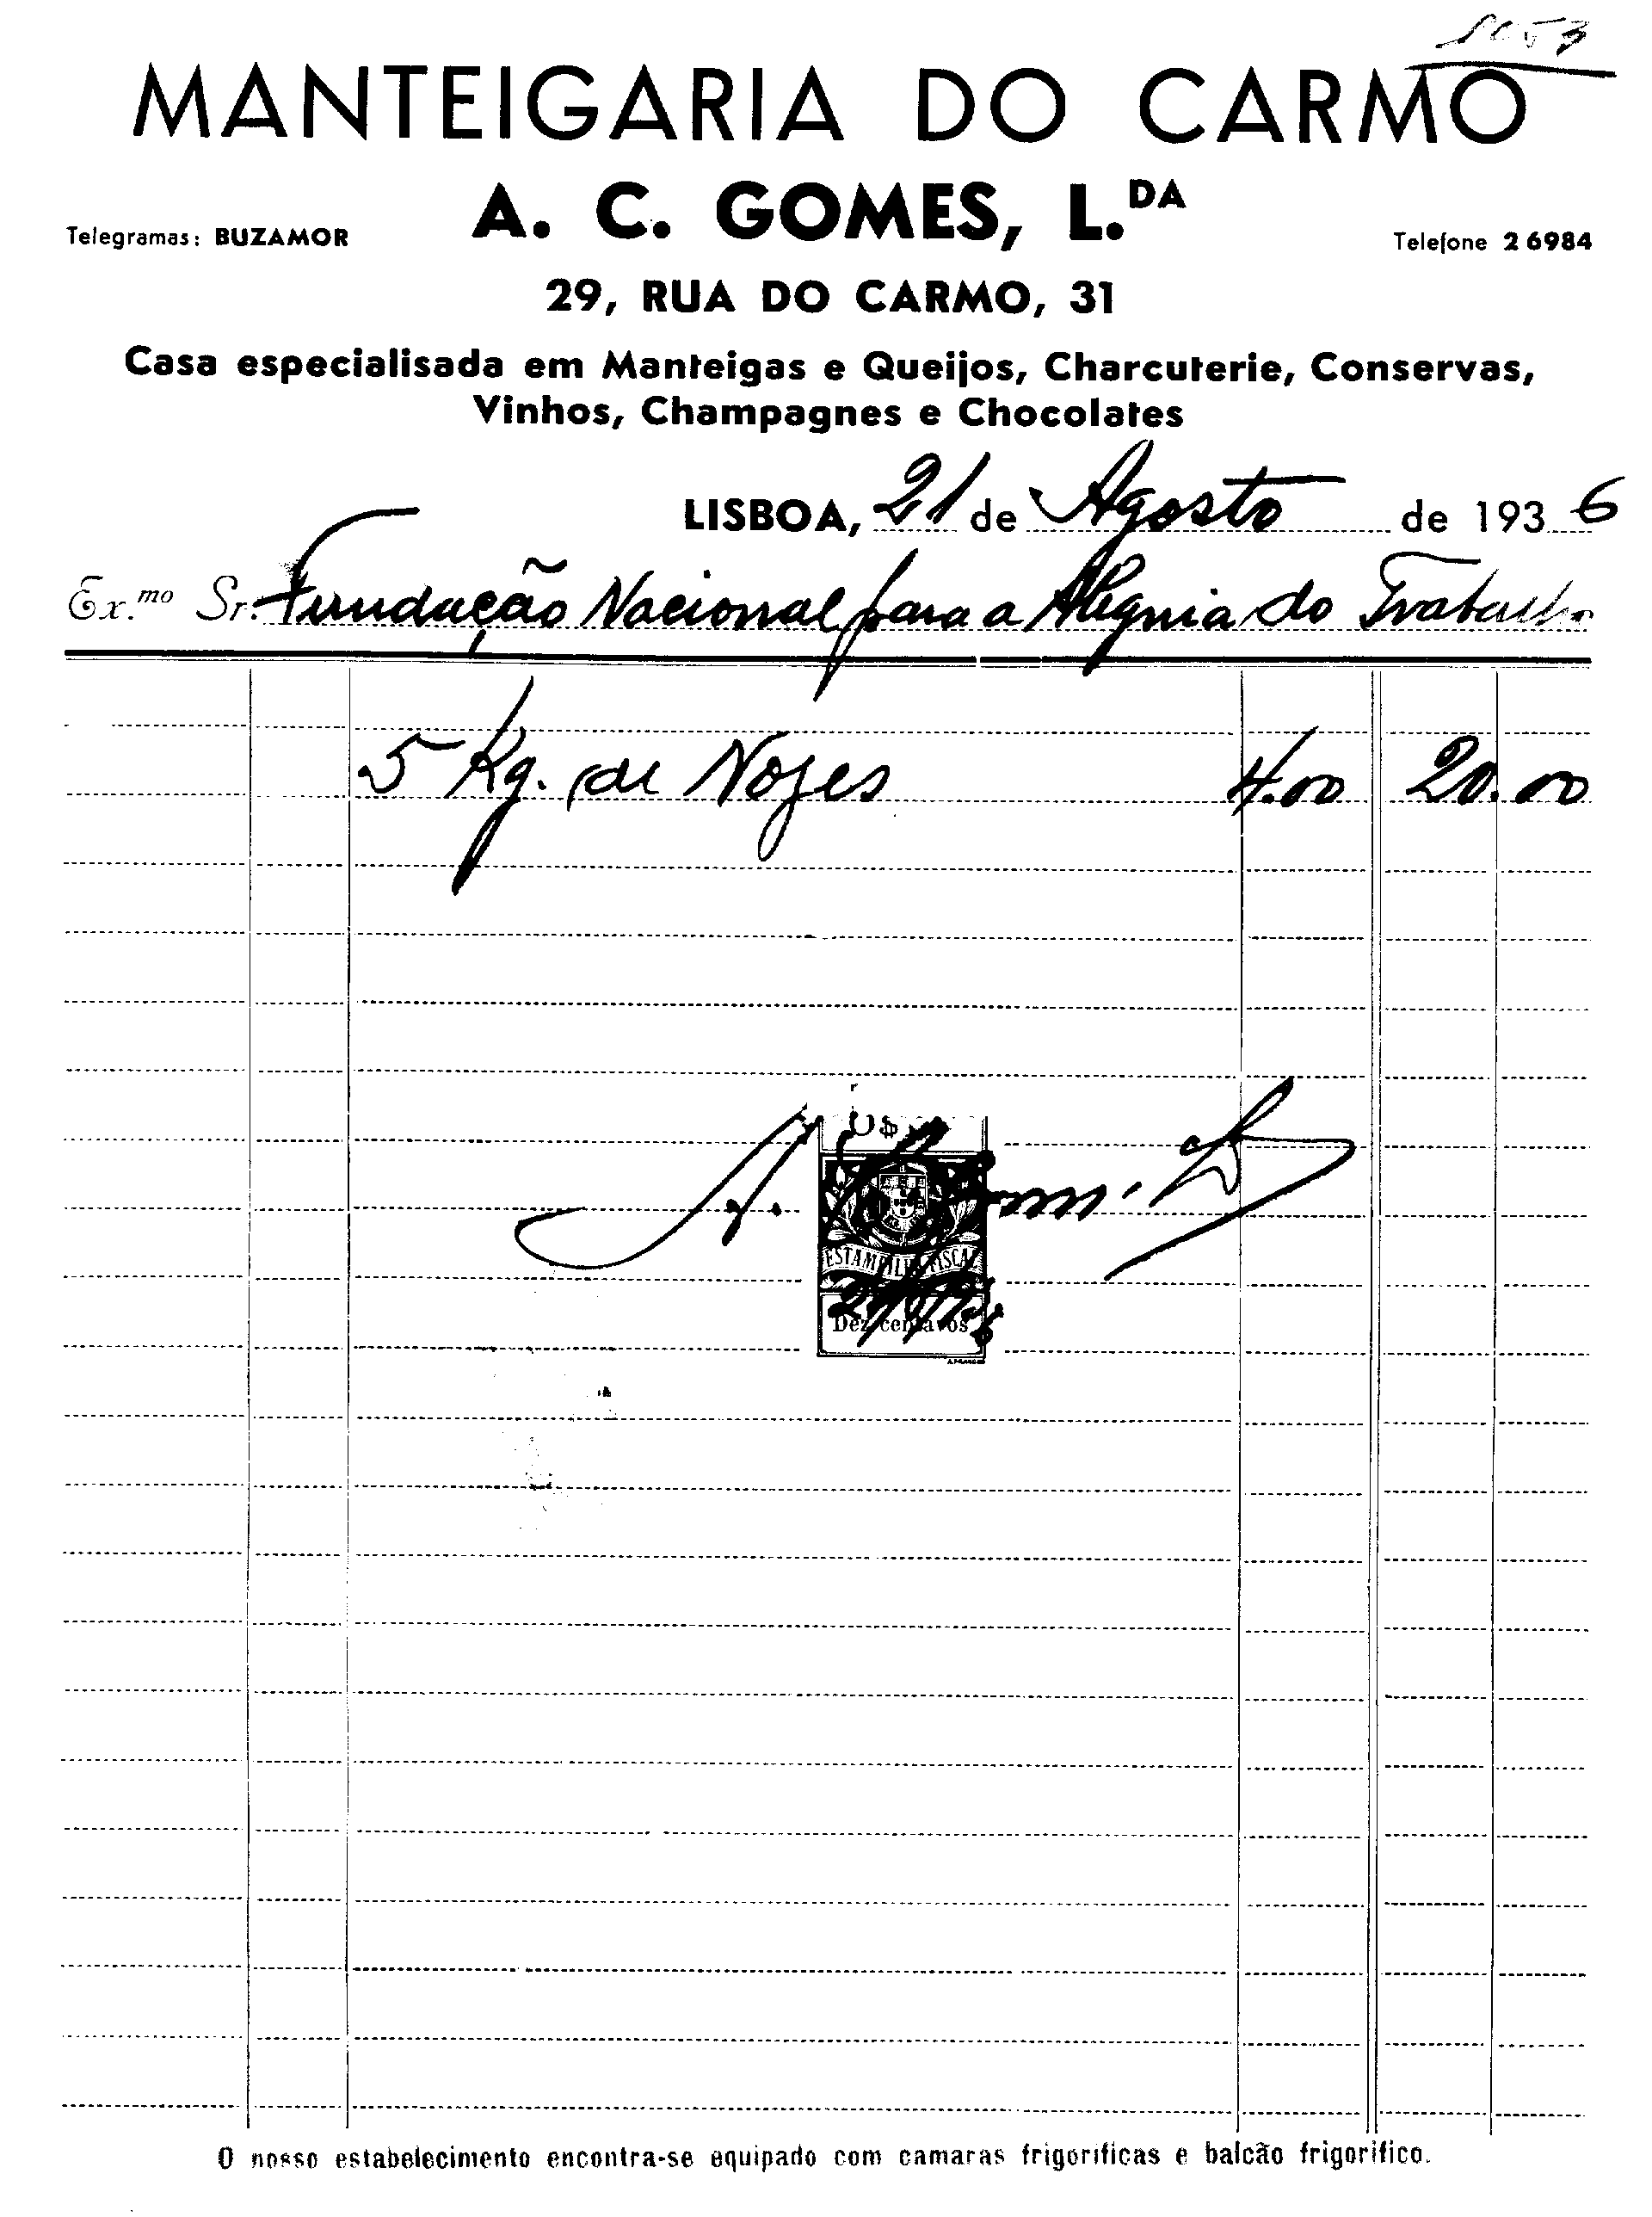 MANTEIGARIA DO CARMO
A. C. GOMES, L.DA
Telegramas: BUZAMOR
Telefone 26984
29, RUA DO CARMO, 31
Casa especialisada em Manteigas e Queijos, Charcuterie, Conservas,
Vinhos, Champagnes e Chocolates
LISBOA, 21 de Agosto de 1936
Ex.mo Sr. Fundação Nacional para a Alegria do Trabalho
5 Kg. de Nozes 4.00 20.00
ESTAMPILHA FISCAL
Dez centavos
O nosso estabelecimento encontra-se equipado com camaras frigorificas e balcão frigorifico.